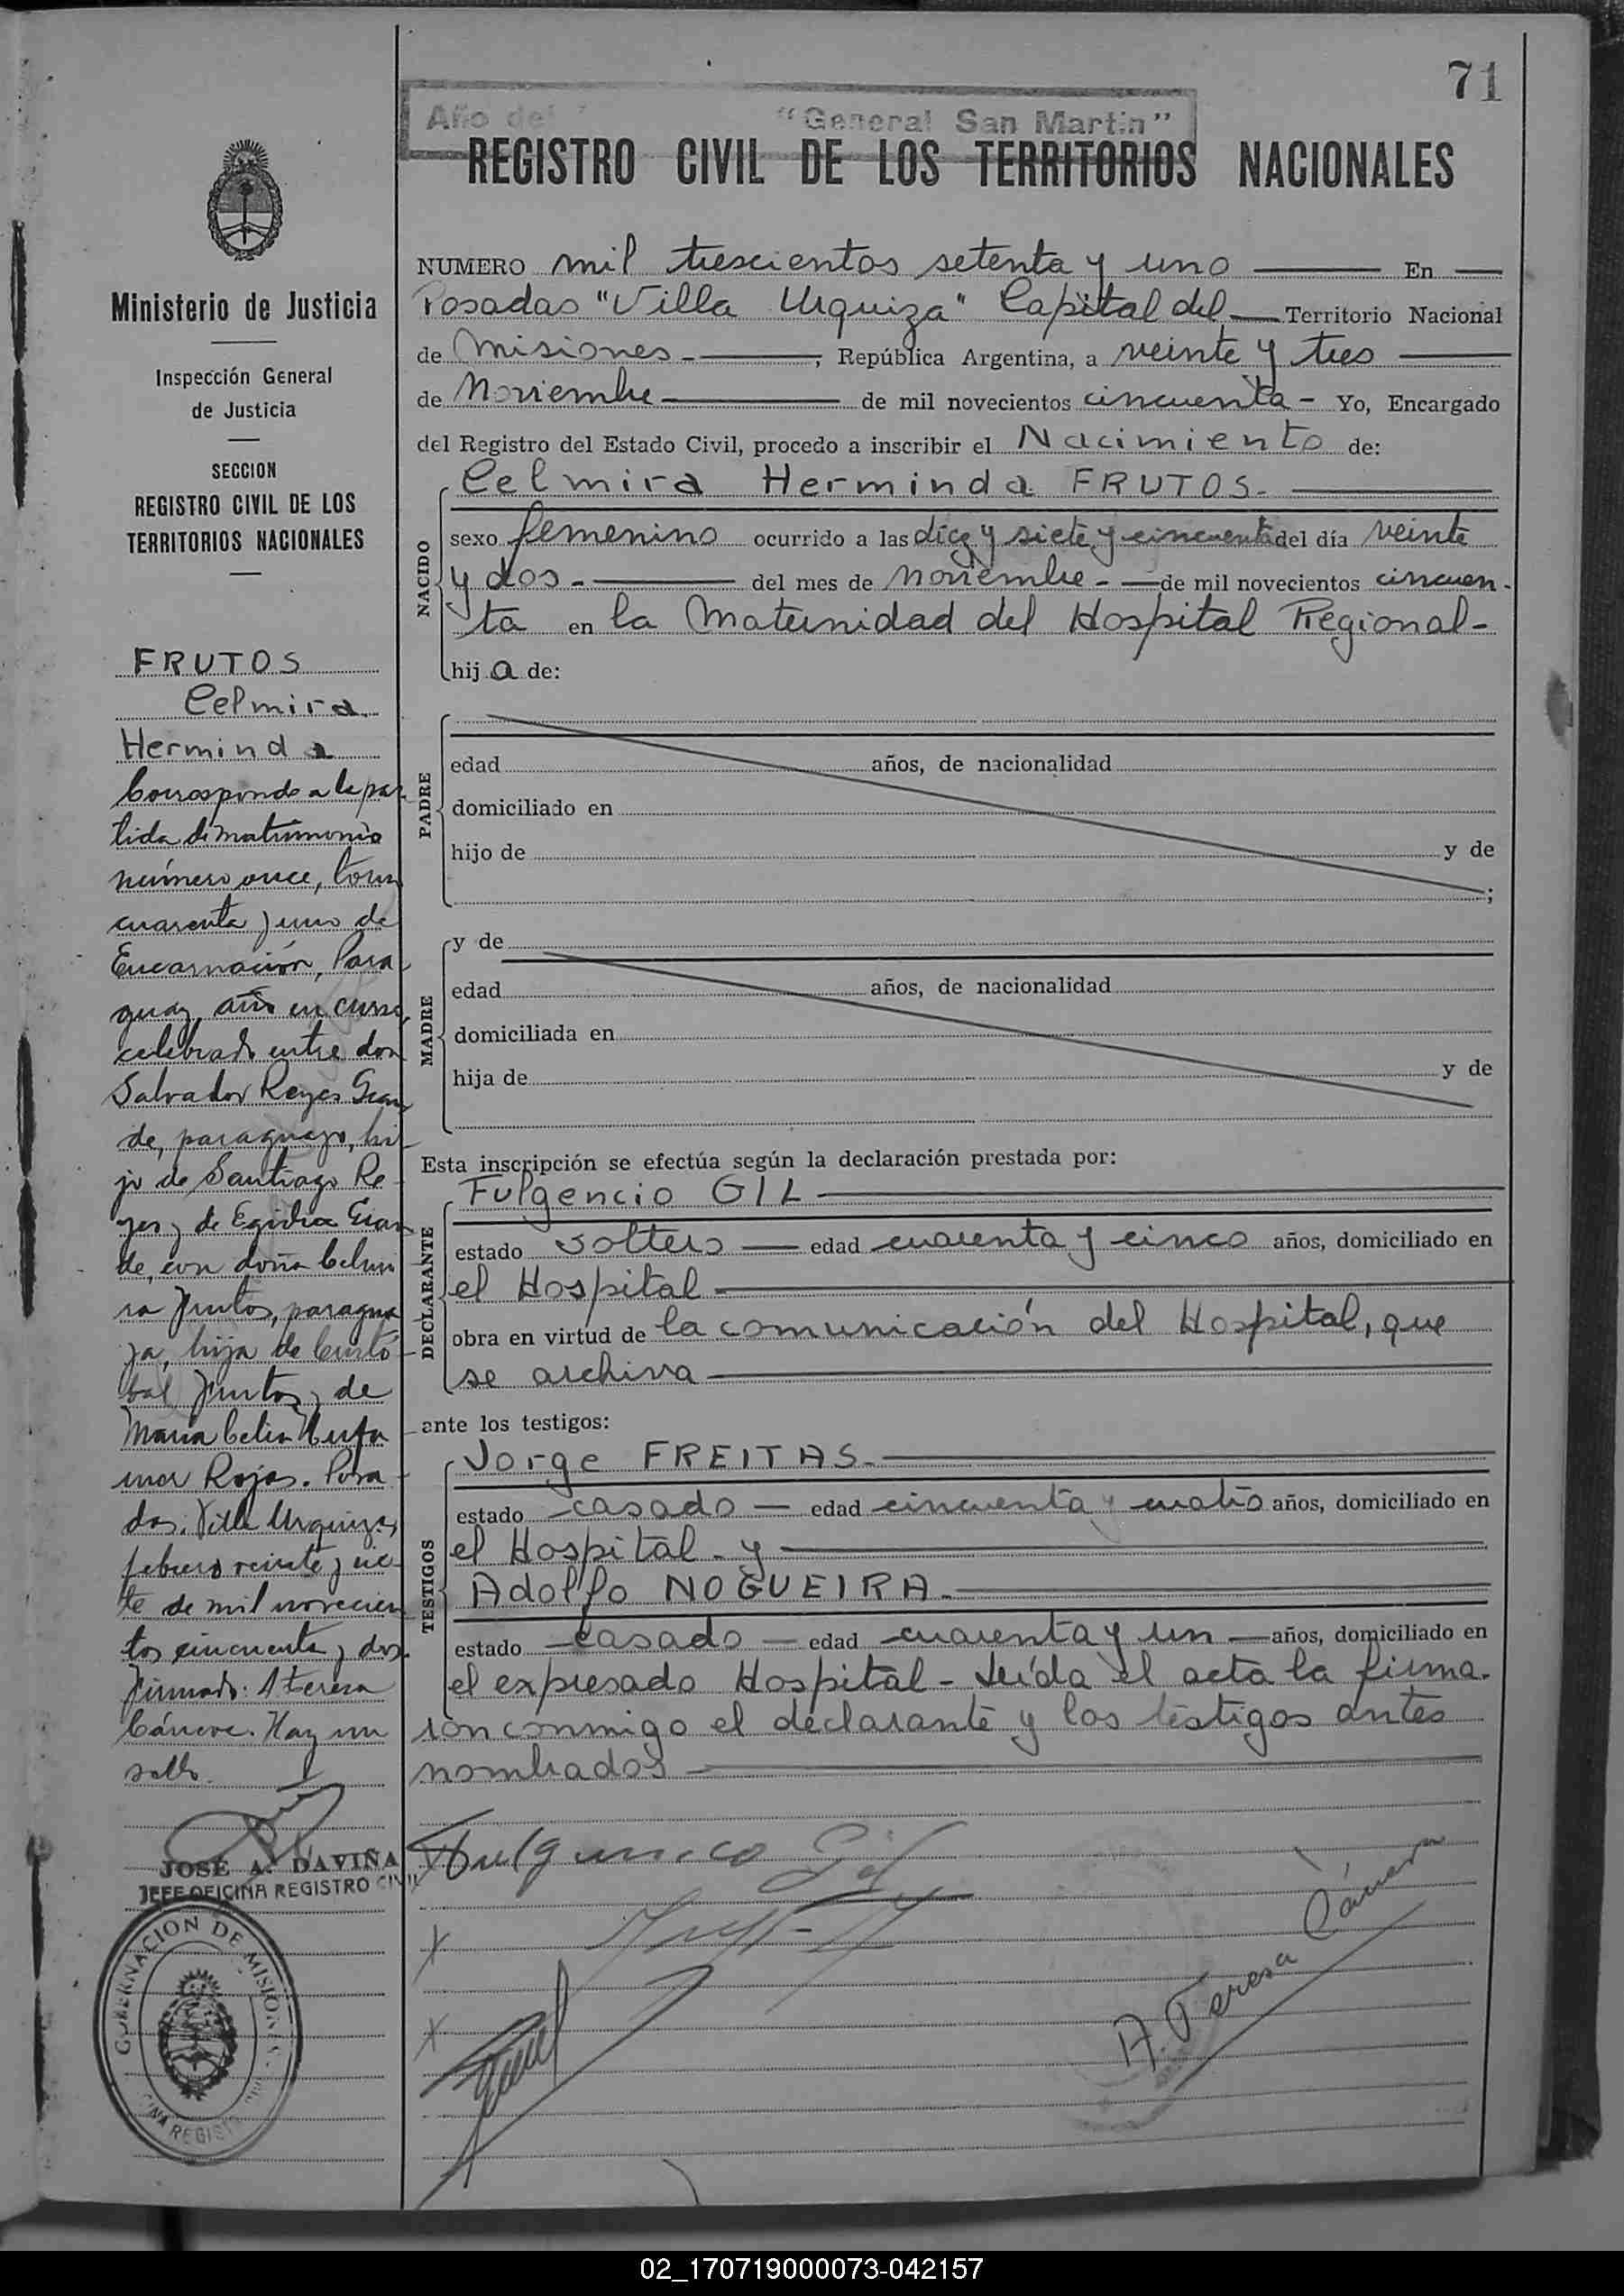 71
Año del "General San Martin"
REGISTRO CIVIL DE LOS TERRITORIOS NACIONALES
NUMERO mil trescientos setenta y uno — En —
Posadas "Villa Urquiza" Capital del — Territorio Nacional
de Misiones - —, República Argentina, a veinte y tres —
de Noviembre — de mil novecientos cincuenta - Yo, Encargado
del Registro del Estado Civil, procedo a inscribir el Nacimiento de:
NACIDO
Celmira Herminda FRUTOS. —
sexo femenino ocurrido a las diez y siete y cincuenta del día veinte
y dos - — del mes de noviembre - — de mil novecientos cincuen-
ta en la Maternidad del Hospital Regional-
hija de:
PADRE
edad años, de nacionalidad
domiciliado en
hijo de y de
;
MADRE
y de
edad años, de nacionalidad
domiciliada en
hija de y de
Esta inscripción se efectúa según la declaración prestada por:
DECLARANTE
Fulgencio GIL —
estado soltero — edad cuarenta y cinco años, domiciliado en
el Hospital —
obra en virtud de la comunicación del Hospital, que
se archiva —
ante los testigos:
TESTIGOS
Jorge FREITAS. —
estado casado — edad cincuenta y cuatro años, domiciliado en
el Hospital - y —
Adolfo NOGUEIRA. —
estado casado — edad cuarenta y un — años, domiciliado en
el expresado Hospital - Leída el acta la firma-
ron conmigo el declarante y los testigos antes
nombrados —
Gil
A. Teresa Cánova
Ministerio de Justicia
Inspección General
de Justicia
SECCION
REGISTRO CIVIL DE LOS
TERRITORIOS NACIONALES
FRUTOS
Celmira
Herminda
Corresponde a la par
tida de matrimonio
número once, tomo
cuarenta y uno de
Encarnación, Para
guay, año en curso,
celebrado entre don
Salvador Reyes Gran
de, paraguayo, hi
jo de Santiago Re
yes y de Egidia Gran
de, con doña Celmi
ra Frutos, paragua
ya, hija de Cristó
bal Frutos y de
María Celia
Rojas. Posa
das, Villa Urquiza,
febrero veinte y sie
te de mil novecien
tos cincuenta y dos.
Firmado: A Teresa
Cánova. Hay un
sello.
JOSE A. DAVIÑA
JEFE OFICINA REGISTRO CIVIL
GOBERNACION DE MISIONES
02_170719000073-042157